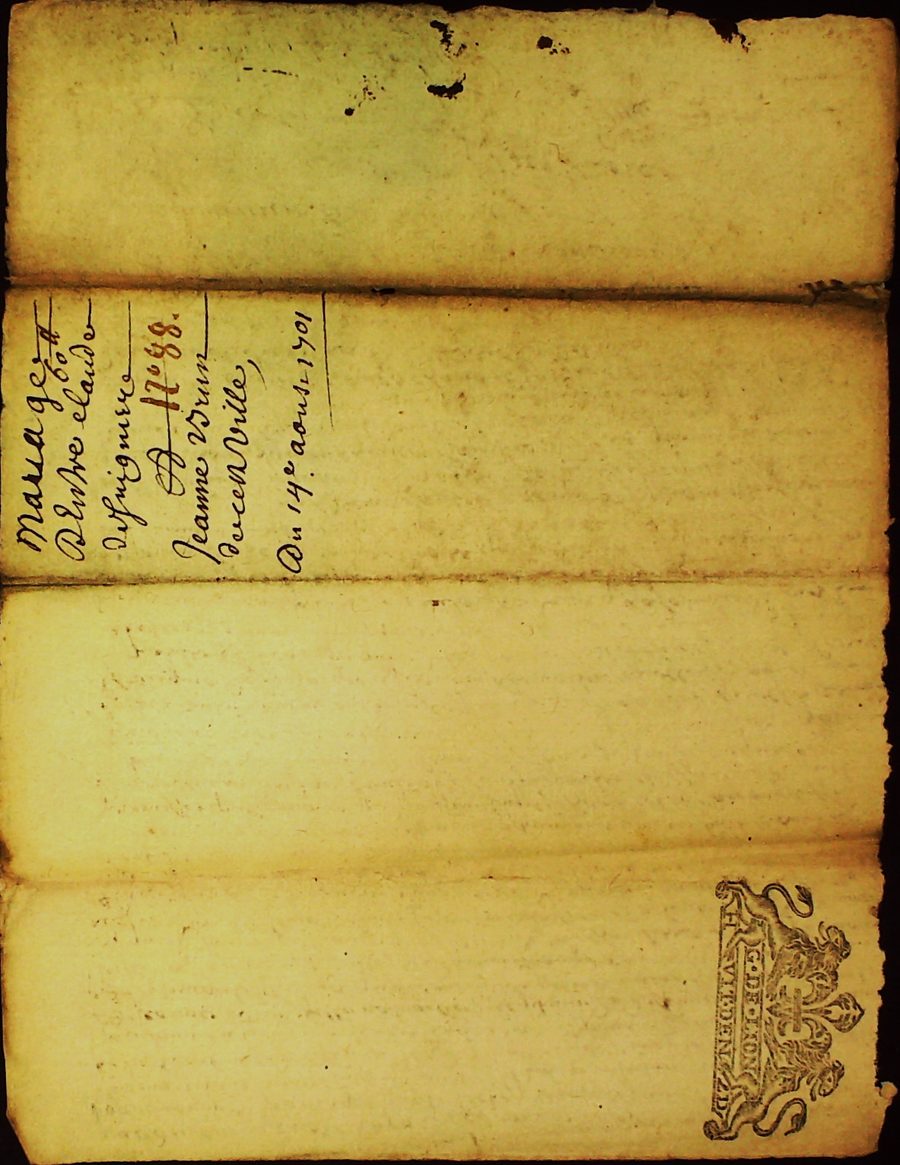 Mariage
60 ₶
D'Entre claude
de Juigniere
N° 88.
Et
Jeanne Brun
de cette Ville,
Du 14e aoust 1701
G·DE·MON
H VIII DEN 2D